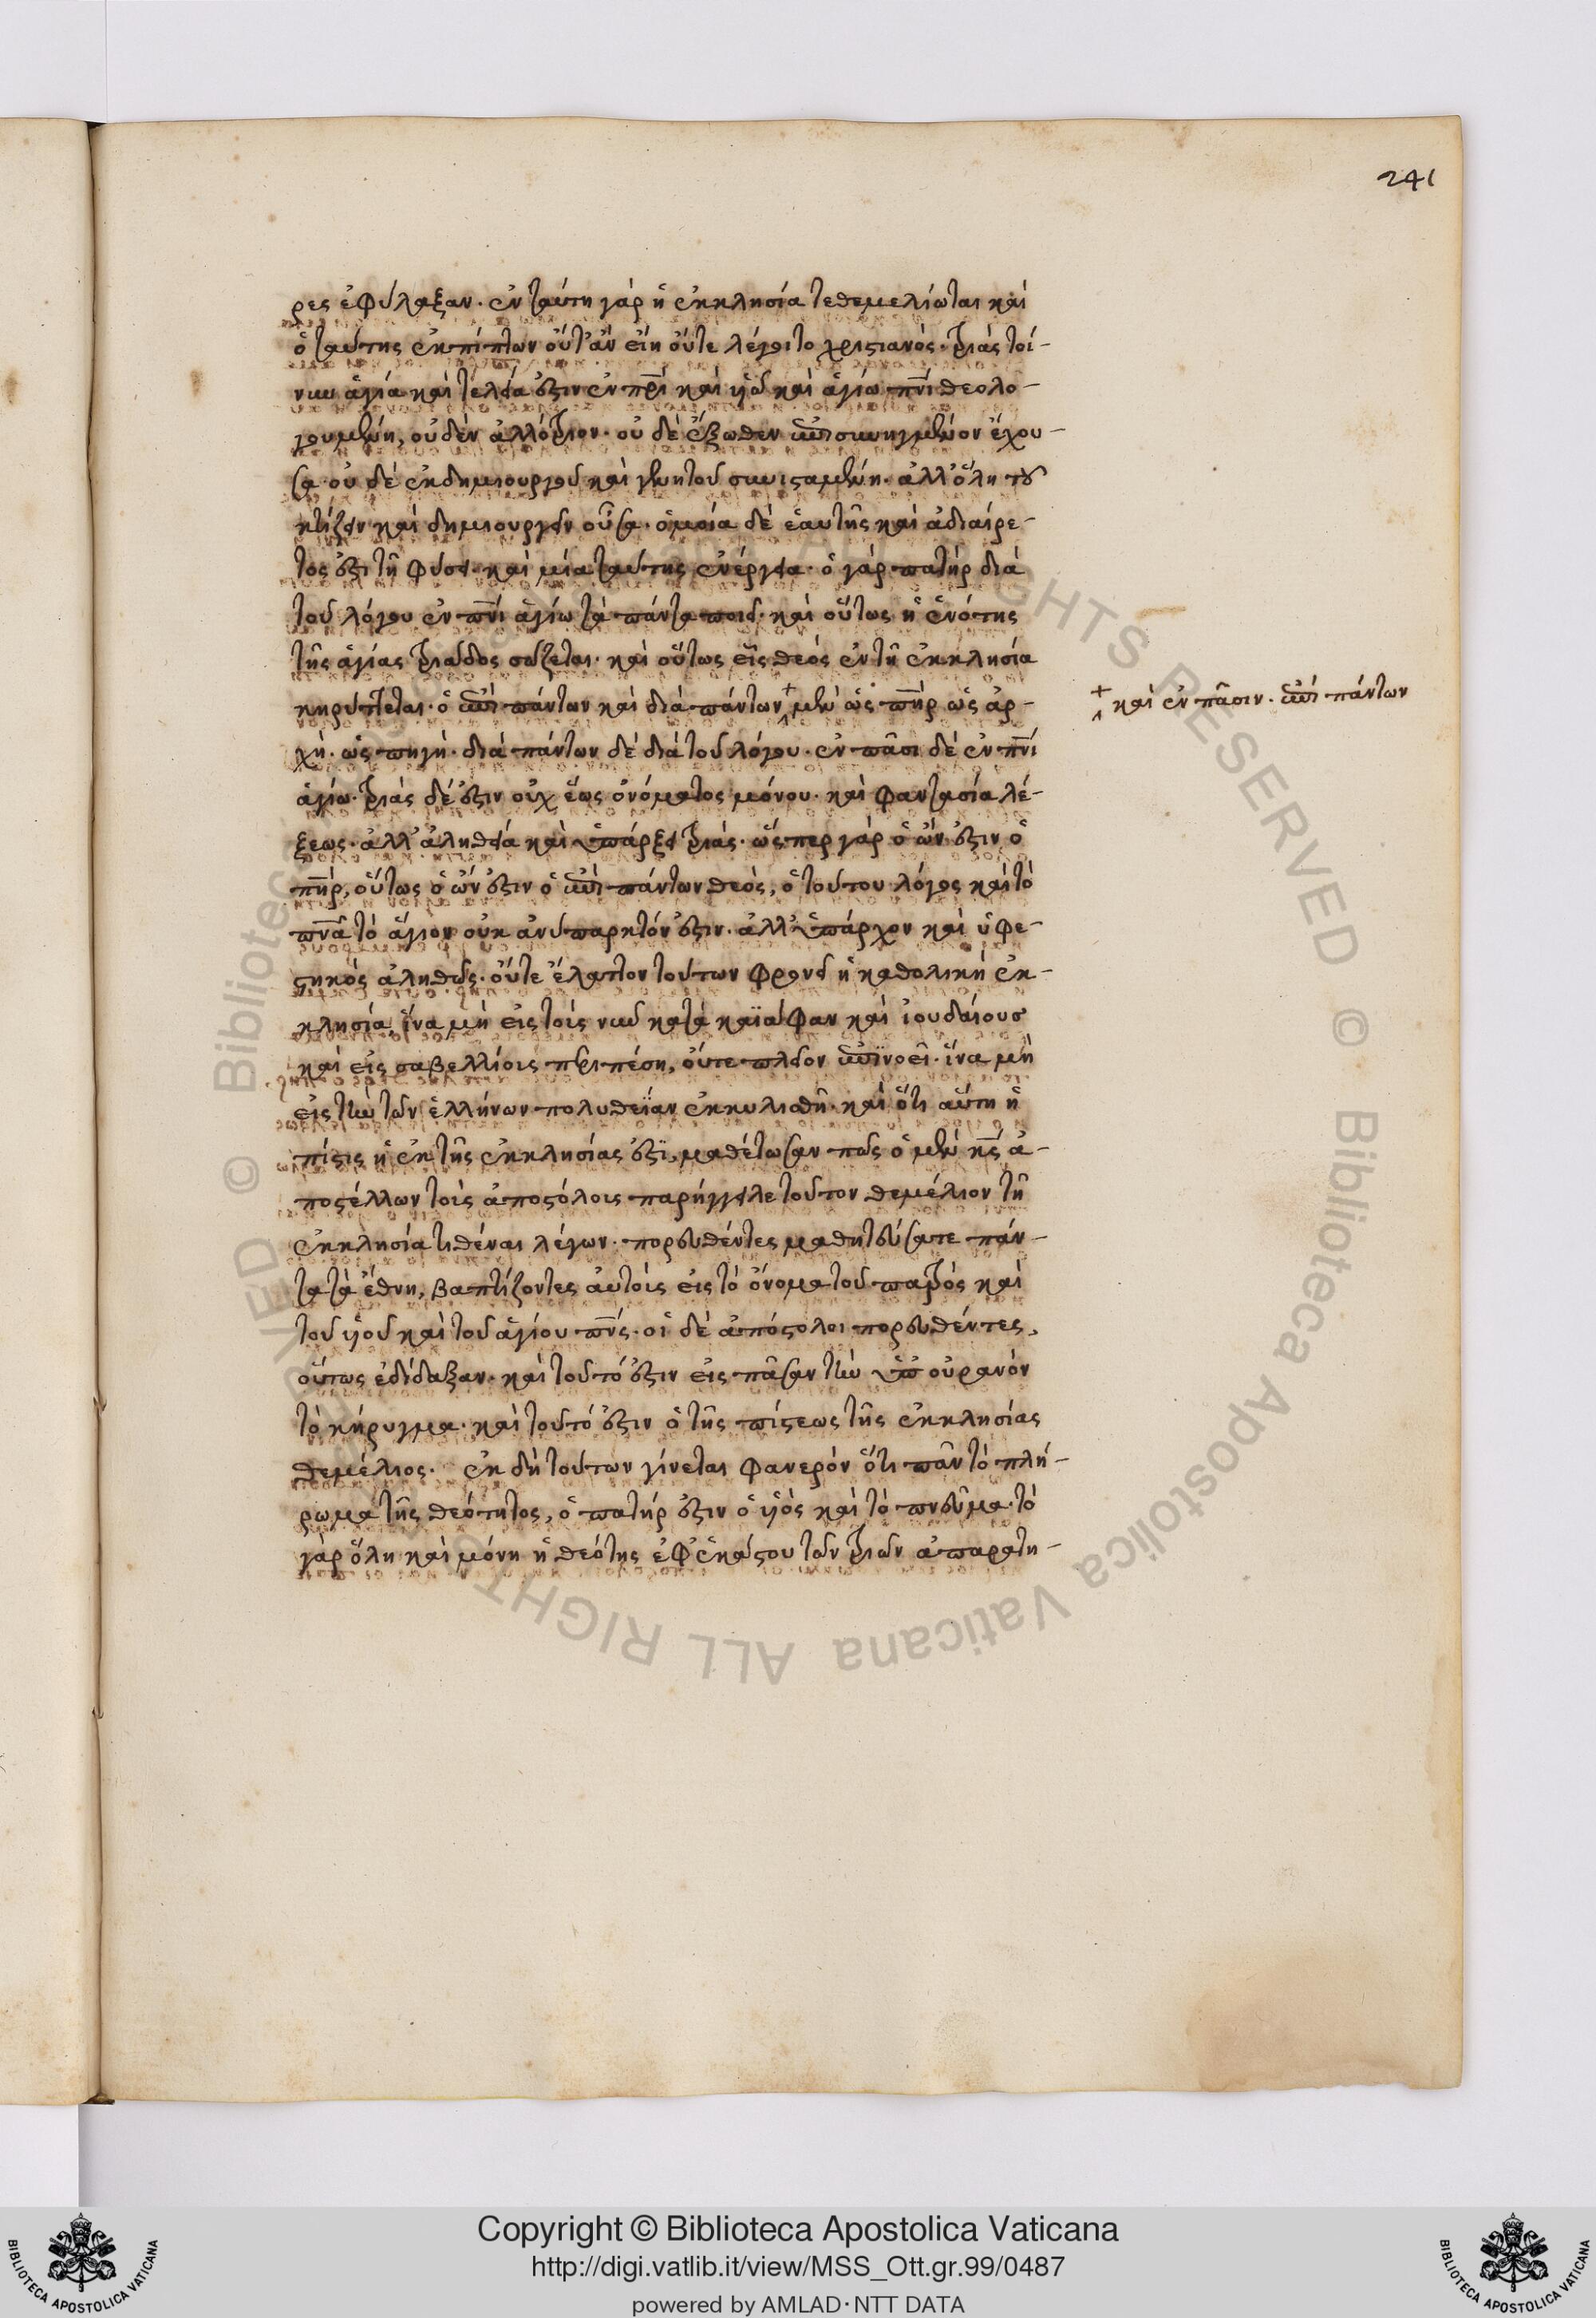 241
ρες ἐφύλαξαν· ἐν ταύτη γὰρ ἡ ἐκκλησία τεθεμελίωται καὶ
ὁ ταύτης ἐκπίπτων οὔτ' ἂν εἴη οὔτε λέγοιτο χριστιανός· τριὰς τοί-
νυν ἁγία καὶ τελεία ἐστιν ἐν πρὶ καὶ υἱῶ καὶ ἁγίω πνὶ θεολο-
γουμένη, οὐδὲν ἀλλότριον· οὐ δὲ ἔξωθεν ἐπισυνηγμένον ἔχου-
σα· οὐ δὲ ἐκ δημιουργοῦ καὶ γενητοῦ συνισταμένη· ἀλλ' ὅλη τοῦ
κτίζειν καὶ δημιουργεῖν οὖσα· ὁμοία δὲ ἑαυτῆς καὶ ἀδιαίρε-
τος ἐστὶ τῆ φύσει· καὶ μία ταύτης ἐνέργεια· ὁ γὰρ πατὴρ διὰ
τοῦ λόγου ἐν πνὶ ἁγίω τὰ πάντα ποιεῖ· καὶ οὕτως ἡ ἑνότης
τῆς ἁγίας τριάδος σώζεται· καὶ οὕτως εἷς θεὸς ἐν τῆ ἐκκλησία
κηρύττεται· ὁ ἐπὶ πάντων καὶ διὰ πάντων + μὲν ὡς πὴρ ὡς ἀρ-
+ καὶ ἐν πᾶσιν· ἐπὶ πάντων
χὴ· ὡς πηγὴ· διὰ πάντων δὲ διὰ τοῦ λόγου· ἐν πᾶσι δὲ ἐν πνὶ
ἁγίω· τριὰς δέ ἐστιν οὐχ ἕως ὀνόματος μόνου· καὶ φαντασία λέ-
ξεως· ἀλλ' ἀληθεία καὶ ὑπάρξει τριάς· ὥσπερ γὰρ ὁ ὤν ἐστιν ὁ
πὴρ, οὕτως ὁ ὤν ἐστιν ὁ ἐπὶ πάντων θεὸς, ὁ τούτου λόγος καὶ τὸ
πνᾶ τὸ ἅγιον οὐκ ἀνύπαρκτόν ἐστιν· ἀλλ' ὑπάρχον καὶ ὑφε-
στηκὸς ἀληθῶς· οὔτε ἔλαττον τούτων φρονεῖ ἡ καθολικὴ ἐκ-
κλησία, ἵνα μὴ εἰς τοὺς νῦν κατὰ καϊάφαν καὶ ἰουδαίους
καὶ εἰς σαβελλίοις περιπέση, οὔτε πλεῖον ἐπινοεῖ· ἵνα μὴ
εἰς τὴν τῶν ἑλλήνων πολυθεΐαν ἐκκυλισθῆ· καὶ ὅτι αὕτη ἡ
πίστις ἡ ἐκ τῆς ἐκκλησίας ἐστὶ, μαθέτωσαν πῶς ὁ μὲν κς ἀ-
ποστέλλων τοὺς ἀποστόλοις παρήγγειλε τοῦτον θεμέλιον τῆ
ἐκκλησία τιθέναι λέγων· πορευθέντες μαθητεύσατε πάν-
τα τὰ ἔθνη, βαπτίζοντες αὐτοὺς εἰς τὸ ὄνομα τοῦ πατρὸς καὶ
τοῦ υἱοῦ καὶ τοῦ ἁγίου πνς· οἱ δὲ ἀπόστολοι πορευθέντες,
οὕτως ἐδίδαξαν· καὶ τοῦτό ἐστιν εἰς πᾶσαν τὴν ὑπ' οὐρανὸν
τὸ κήρυγμα· καὶ τοῦτό ἐστιν ὁ τῆς πίστεως τῆς ἐκκλησίας
θεμέλιος· ἐκ δὴ τούτων γίνεται φανερὸν ὅτι πᾶν τὸ πλή-
ρωμα τῆς θεότητος, ὁ πατήρ ἐστιν ὁ υἱὸς καὶ τὸ πνεῦμα· τὸ
γὰρ ὅλη καὶ μόνη ἡ θεότης ἐφ' ἑκάστου τῶν τριῶν ἀπαρατη-
© Biblioteca Apostolica Vaticana ALL RIGHTS RESERVED
Copyright © Biblioteca Apostolica Vaticana
http://digi.vatlib.it/view/MSS_Ott.gr.99/0487
powered by AMLAD·NTT DATA
BIBLIOTECA APOSTOLICA VATICANA
BIBLIOTECA APOSTOLICA VATICANA